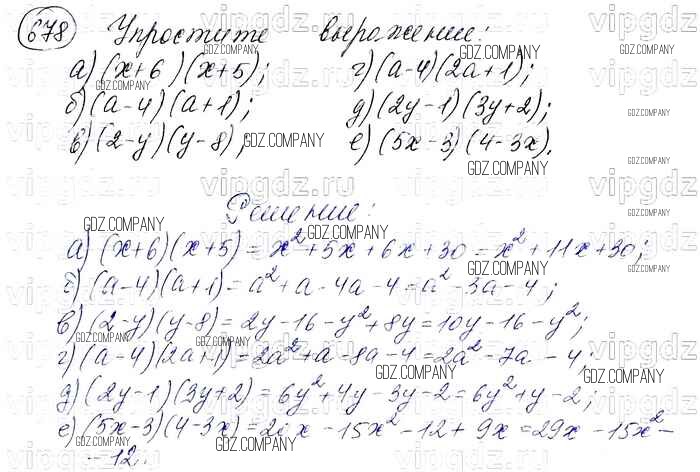 678 Упростите выражение:
а) (x+6)(x+5); г) (a-4)(2a+1);
б) (a-4)(a+1); д) (2y-1)(3y+2);
в) (2-y)(y-8); е) (5x-3)(4-3x).
Решение:
а) (x+6)(x+5) = x²+5x+6x+30 = x²+11x+30;
б) (a-4)(a+1) = a²+a-4a-4 = a²-3a-4;
в) (2-y)(y-8) = 2y-16-y²+8y = 10y-16-y²;
г) (a-4)(2a+1) = 2a²+a-8a-4 = 2a²-7a-4;
д) (2y-1)(3y+2) = 6y²+4y-3y-2 = 6y²+y-2;
е) (5x-3)(4-3x) = 20x-15x²-12+9x = 29x-15x²-
-12.
vipgdz.ru
GDZ.COMPANY